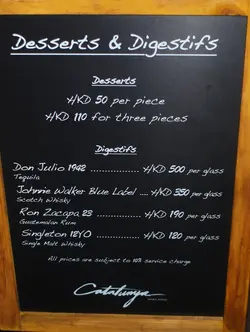 Desserts & Digestifs
Desserts
HKD 50 per piece
HKD 110 for three pieces
Digestifs
Don Julio 1942 .............. HKD 500 per glass
Tequila
Johnnie Walker Blue Label .... HKD 350 per glass
Scotch Whisky
Ron Zacapa 23 .............. HKD 190 per glass
Guatemalan Rum
Singleton 12YO .............. HKD 120 per glass
Single Malt Whisky
All prices are subject to 10% service charge
Catalunya